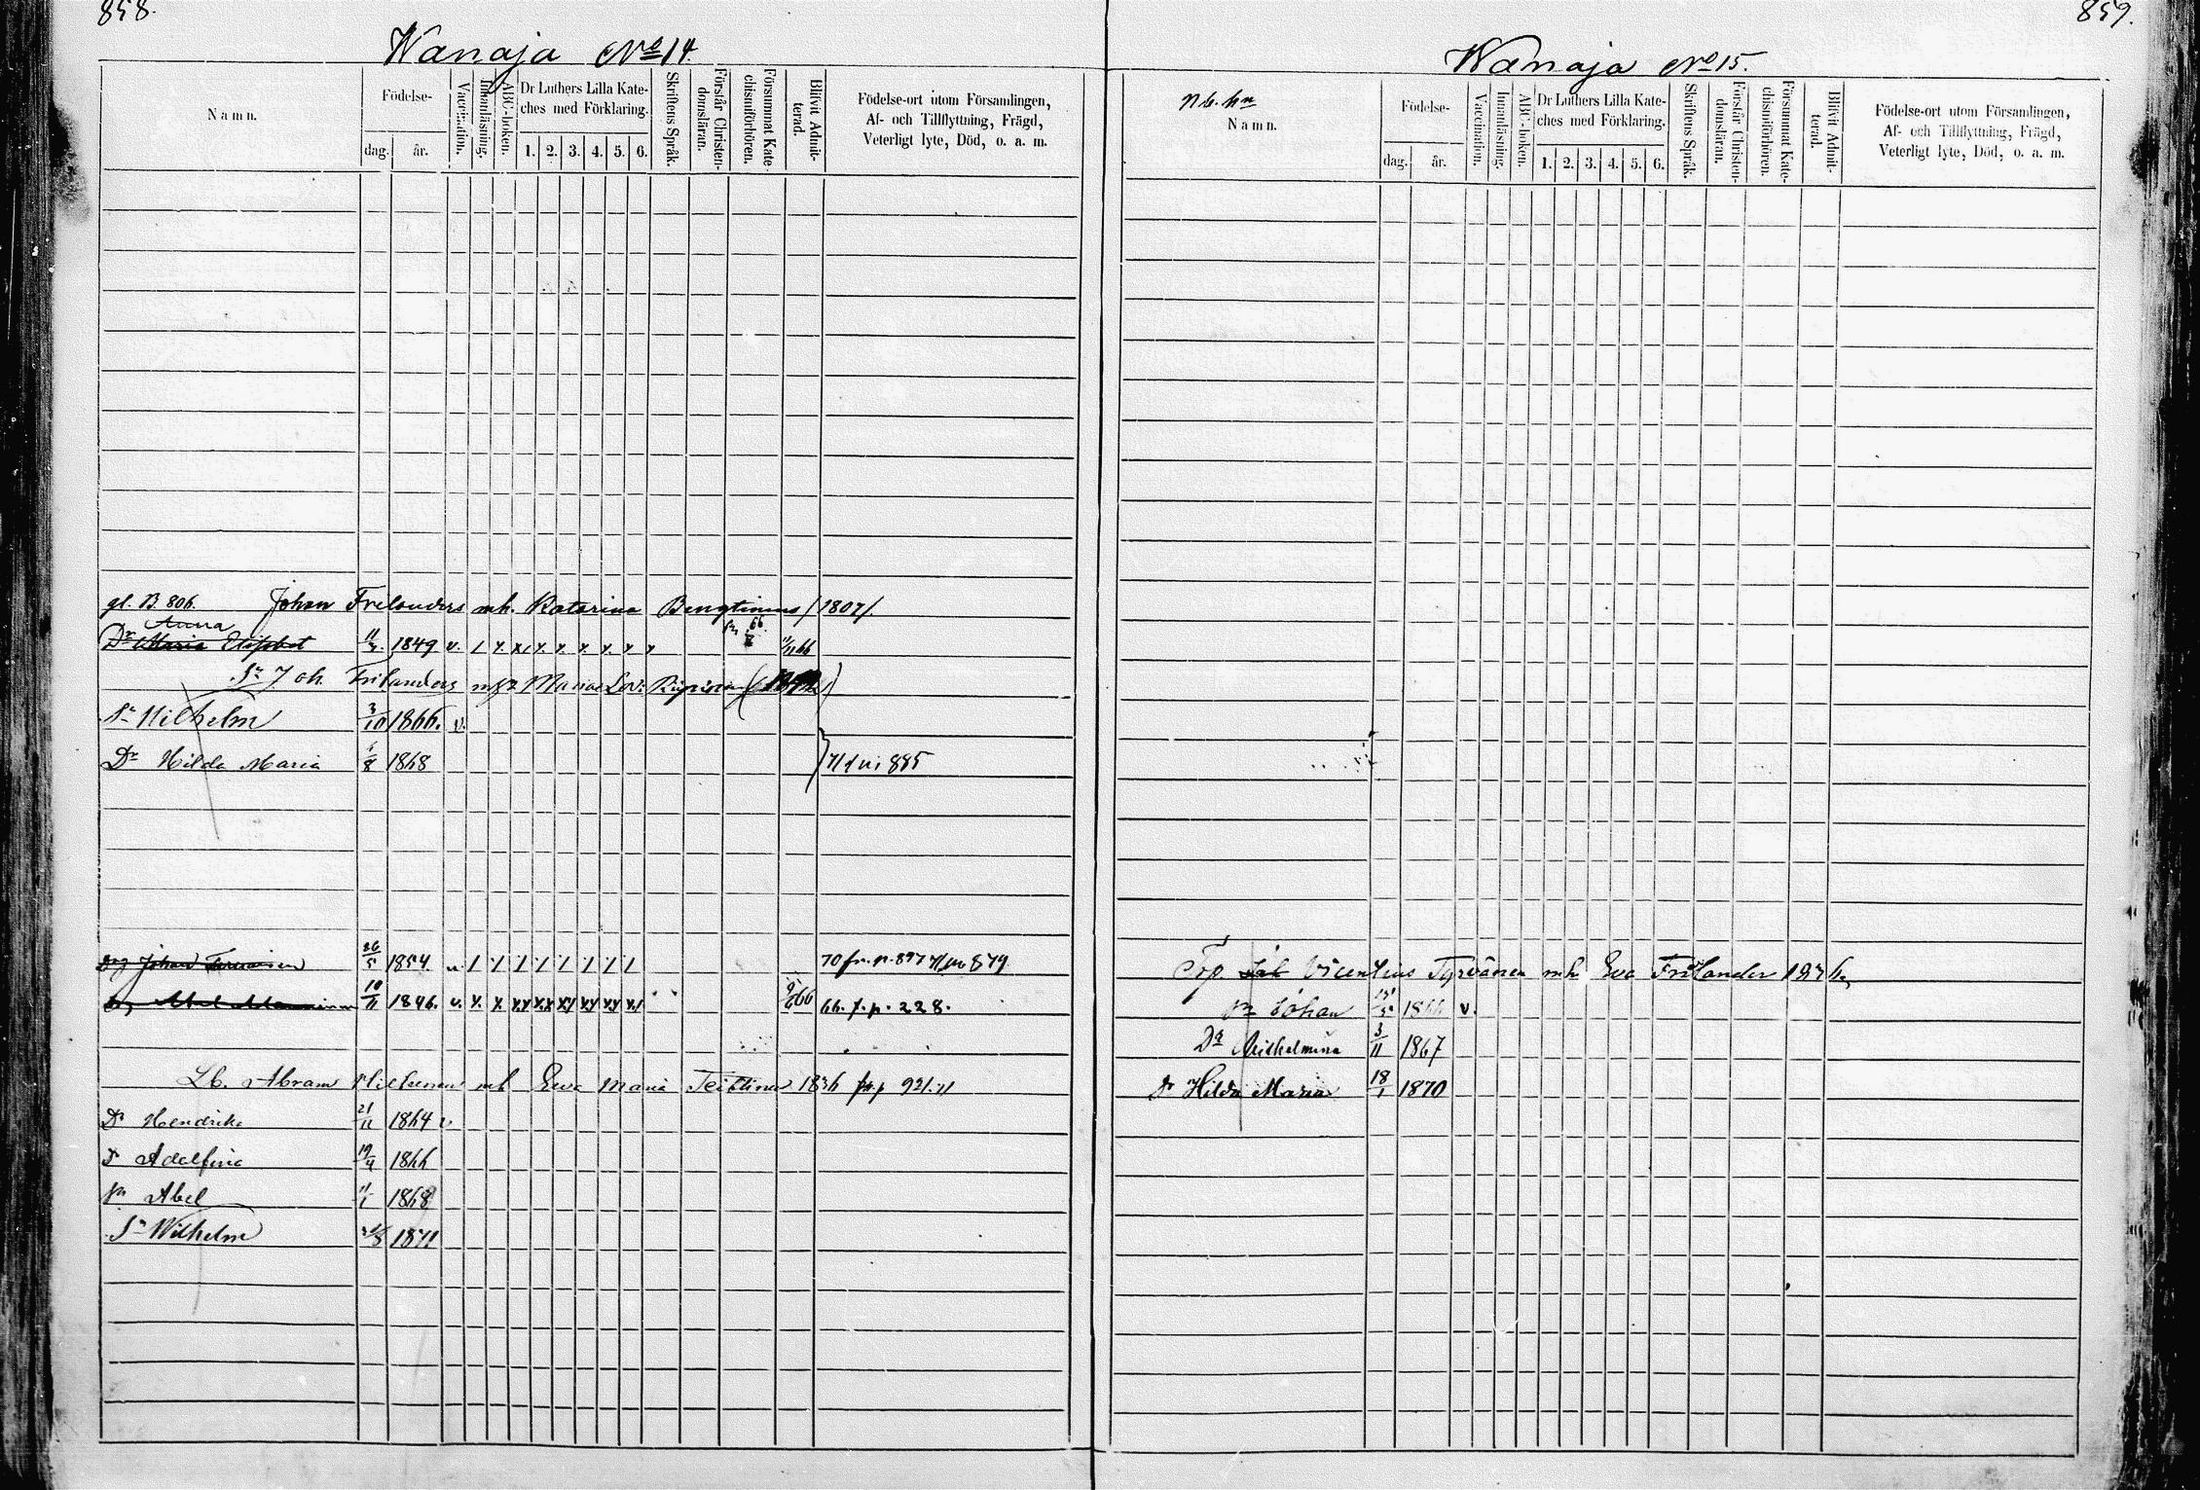 858.
Wanaja No 14.
Namn.
Födelse-
dag.
år.
Vaccination.
Innanläsning.
ABC-boken.
Dr Luthers Lilla Kate-
ches med Förklaring.
1. 2. 3. 4. 5. 6.
Skriftens Språk.
Förstår Christen-
domsläran.
Försummat Kate-
chismiförhören.
Blifvit Admit-
terad.
Födelse-ort utom Församlingen,
Af- och Tillflyttning, Frägd,
Veterligt lyte, Död, o. a. m.
gl. B. 806. Johan Frelanders mh. Katarina Bengtinus /1807/.
Anna
Dr Maria Elisabet 11/3. 1849 v. / x x/ x x x x x x 11/11 66
Sn Joh. Frilanders
Sn Vilhelm 3/10 1866. v.
Dr Hilda Maria 1868
Johan 26/5 1854 v. / / / / / / / / 70 fr. p. 897
10/11 1846. v. x. x 66. f. p. 228.
Lb. Abram mh Ewa Maria 1836 fr. p 921.71
Dr Hendrika 21/11 1864 v
Dr Adelfina 19/4 1866
Sn Abel 11/1 1868
Sn Wilhelm 1871
859.
Wanaja No 15.
Namn.
Födelse-
dag.
år.
Vaccination.
Innanläsning.
ABC-boken.
Dr Luthers Lilla Kate-
ches med Förklaring.
1. 2. 3. 4. 5. 6.
Skriftens Språk.
Förstår Christen-
domsläran.
Försummat Kate-
chismiförhören.
Blifvit Admit-
terad.
Födelse-ort utom Församlingen,
Af- och Tillflyttning, Frägd,
Veterligt lyte, Död, o. a. m.
Trp Vicentius Tyrvänen mh Eva Frilander 1836
Sn Johan 1866 v.
Dr Wilhelmina 3/11 1867
Dr Hilda Maria 18/1 1870